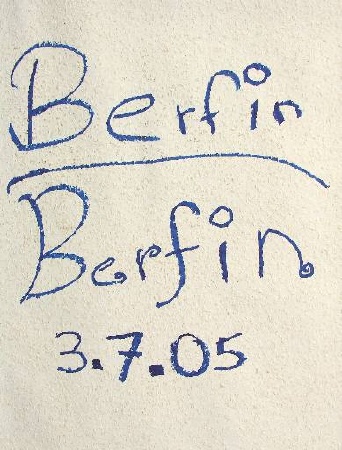 Berfin
Berfin
3.7.05